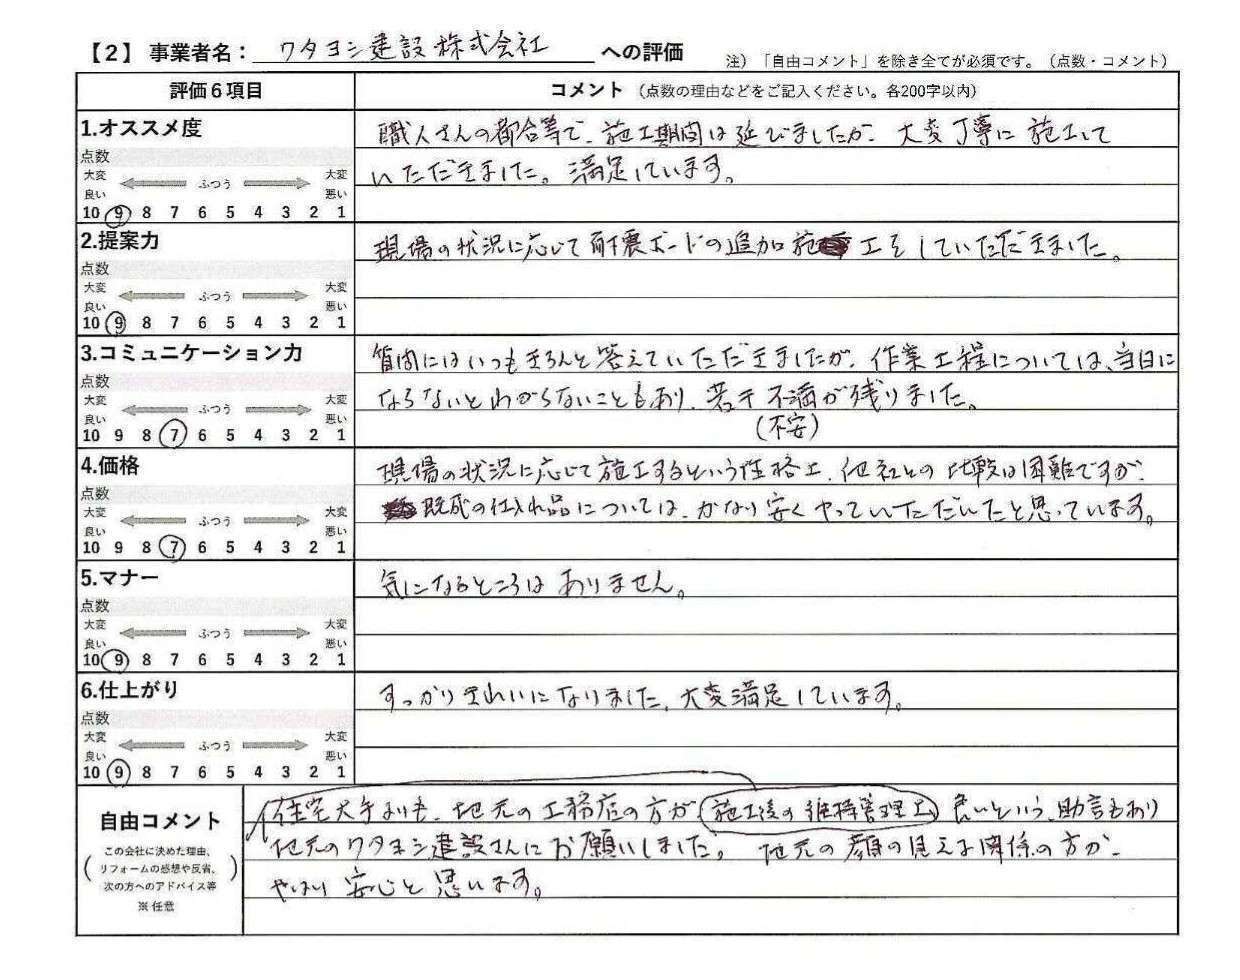 【2】 事業者名： ワタヨシ建設株式会社 への評価
注）「自由コメント」を除き全てが必須です。（点数・コメント）
評価６項目 コメント（点数の理由などをご記入ください。各200字以内）
1.オススメ度
点数
大変 良い ふつう 大変 悪い
10 9 8 7 6 5 4 3 2 1
職人さんの都合等で、施工期間は延びましたが、大変丁寧に施工して
いただきました。満足しています。
2.提案力
点数
大変 良い ふつう 大変 悪い
10 9 8 7 6 5 4 3 2 1
現場の状況に応じて耐震ボードの追加施工をしていただきました。
3.コミュニケーション力
点数
大変 良い ふつう 大変 悪い
10 9 8 7 6 5 4 3 2 1
質問にはいつもきちんと答えていただきましたが、作業工程については、当日に
ならないとわからないこともあり、若干不満が残りました。
(不安)
4.価格
点数
大変 良い ふつう 大変 悪い
10 9 8 7 6 5 4 3 2 1
現場の状況に応じて施工するという性格上、他社との比較は困難ですが、
既成の仕入れ品については、かなり安くやっていただいたと思っています。
5.マナー
点数
大変 良い ふつう 大変 悪い
10 9 8 7 6 5 4 3 2 1
気になるところはありません。
6.仕上がり
点数
大変 良い ふつう 大変 悪い
10 9 8 7 6 5 4 3 2 1
すっかりきれいになりました。大変満足しています。
自由コメント
（この会社に決めた理由、
リフォームの感想や反省、
次の方へのアドバイス等）
※任意
住宅大手よりも、地元の工務店の方が施工後の維持管理上、良いという助言もあり
地元のワタヨシ建設さんにお願いしました。地元の顔の見える関係の方が、
やはり安心と思います。